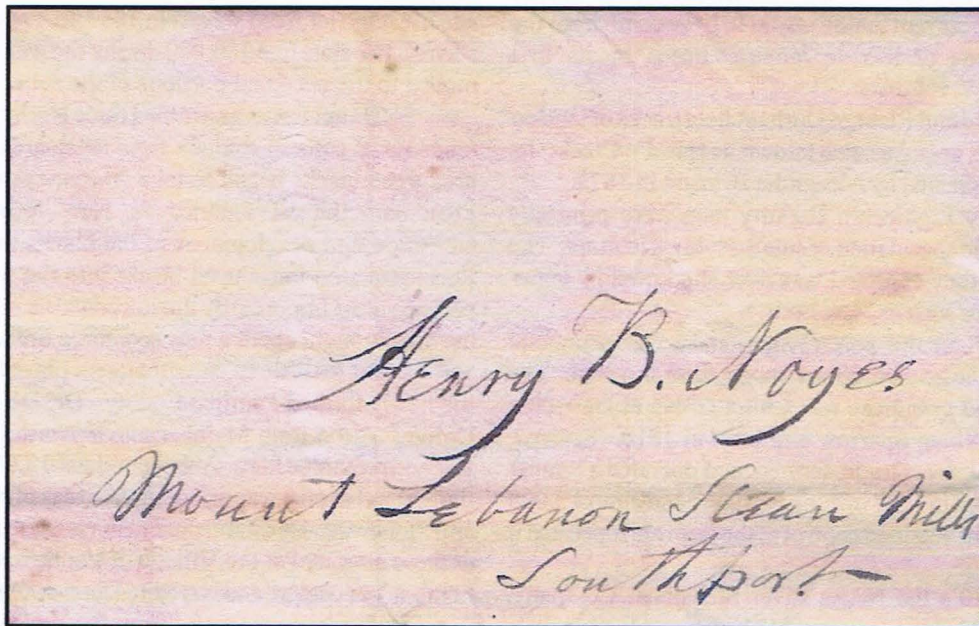 Henry B. Noyes
Mount Lebanon Steam Mills
Southport